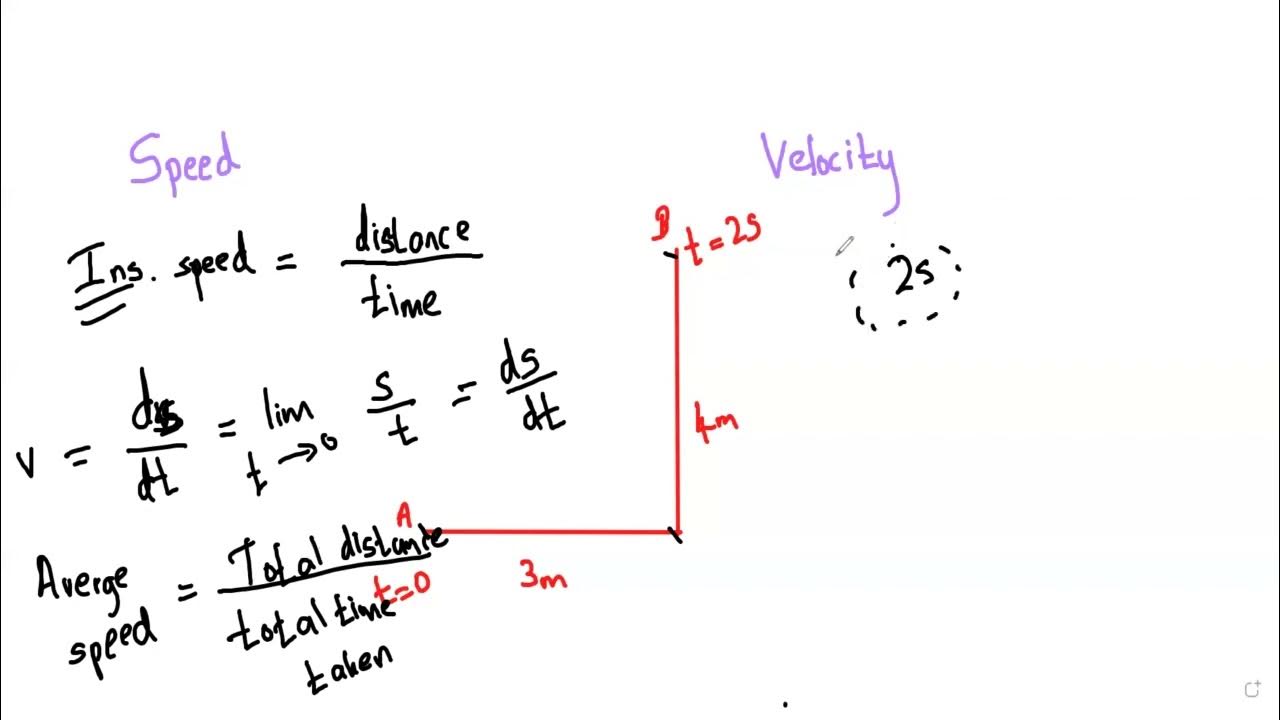 Speed
Velocity
Ins. speed = distance / time
v = ds/dt = lim t→0 s/t = ds/dt
Averge speed = Total distance / total time taken
A
t=0
3m
4m
B
t=2s
2s